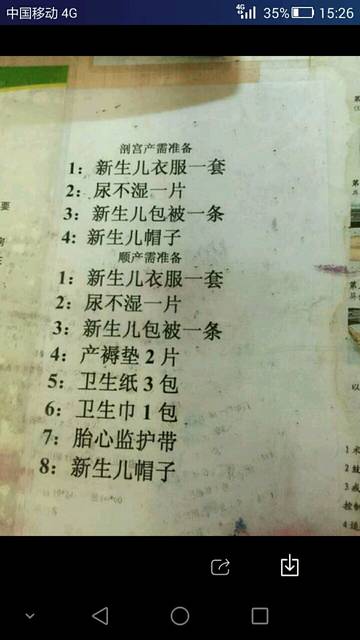 中国移动 4G
4G 35% 15:26
剖宫产需准备
1：新生儿衣服一套
2：尿不湿一片
3：新生儿包被一条
4：新生儿帽子
顺产需准备
1：新生儿衣服一套
2：尿不湿一片
3：新生儿包被一条
4：产褥垫 2 片
5：卫生纸 3 包
6：卫生巾 1 包
7：胎心监护带
8：新生儿帽子
要